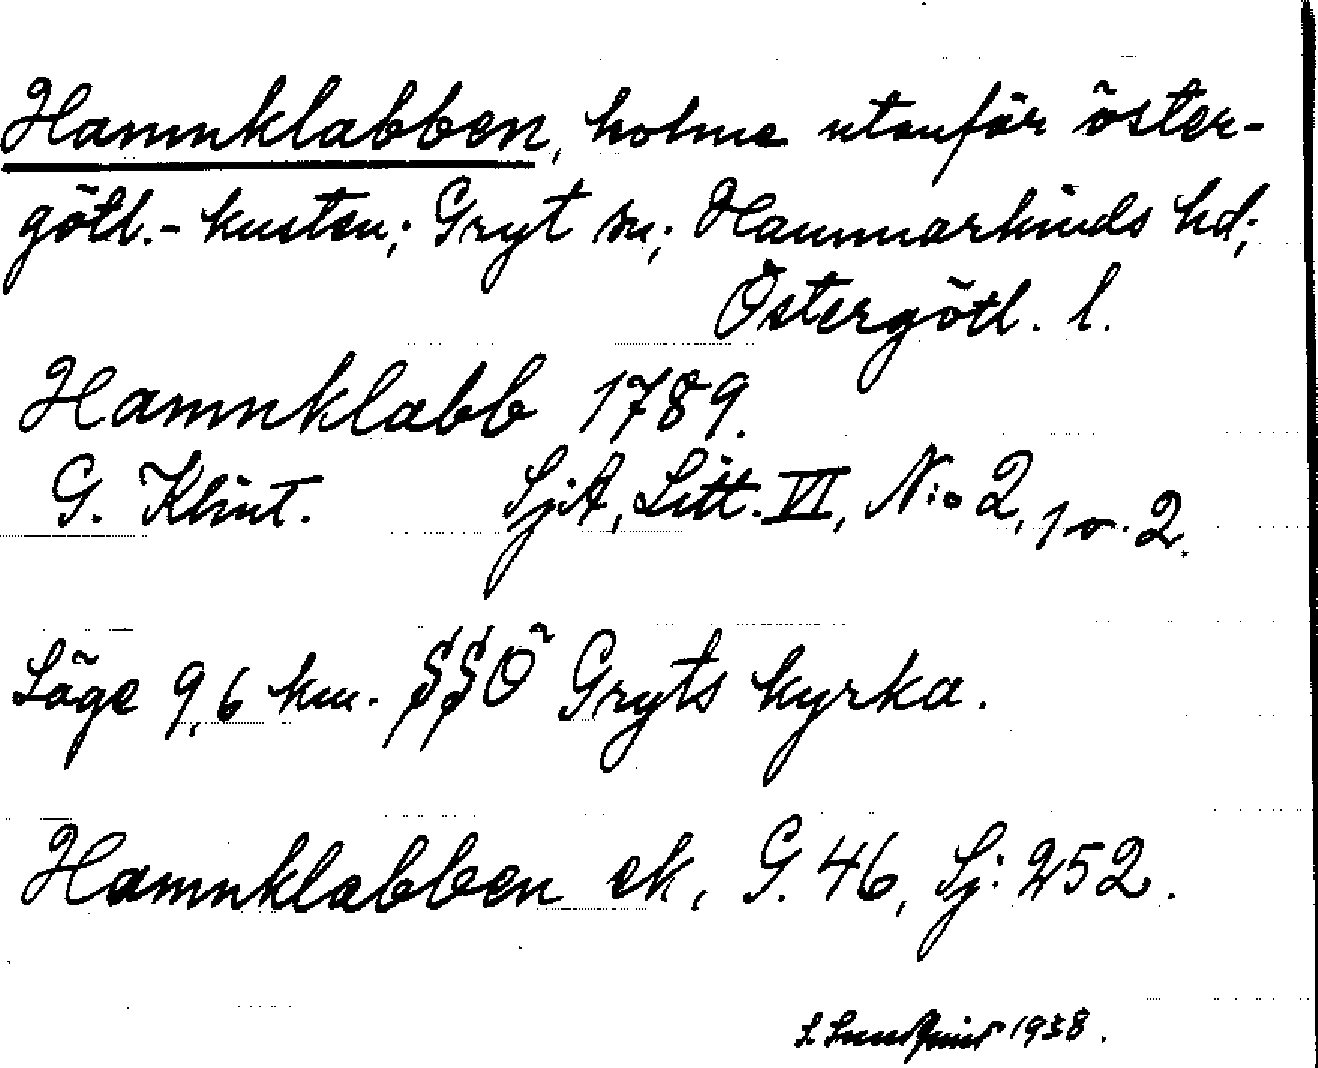 Hamnklabben, holme utanför öster-
götl.-kusten; Gryt sn; Hammarkinds hd;
Östergötl. l.
Hamnklabb 1789.
G. Klint. SjA, Litt. VI, N:o 2, 1 o. 2.
Läge 9,6 km. SSÖ Gryts kyrka.
Hamnklabben ek, G. 46, Sj: 252.
S. Lundqvist 1938.